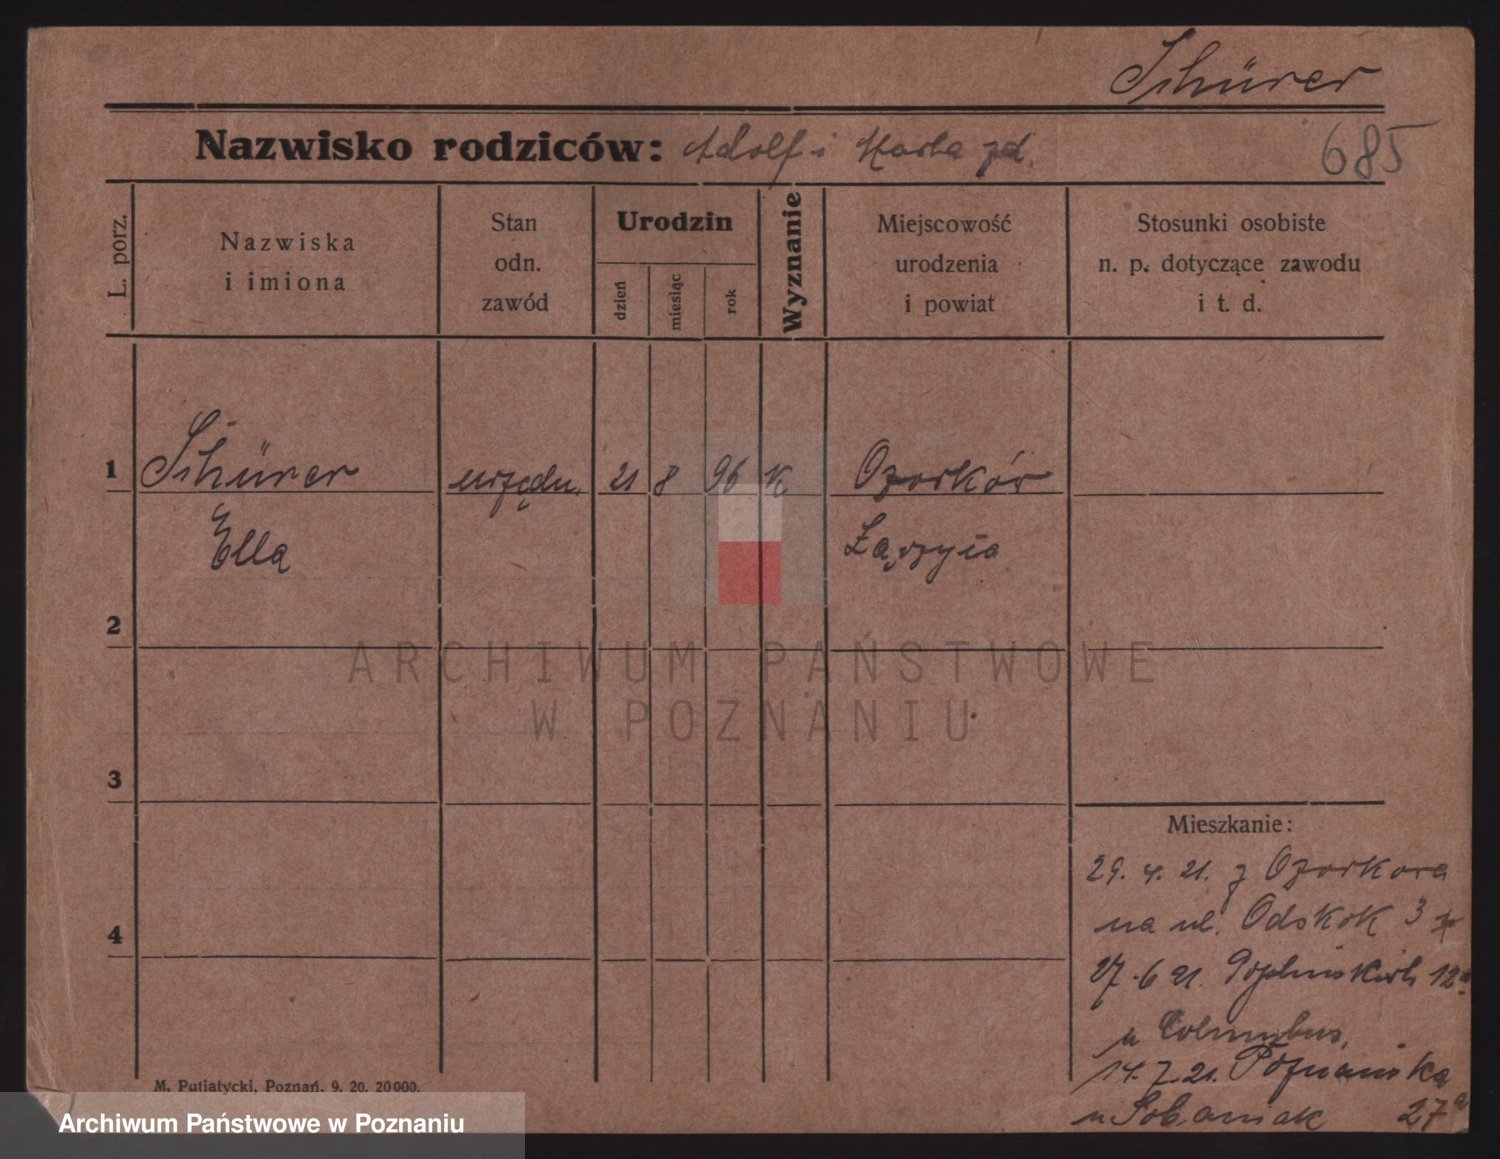 Schürer
Nazwisko rodziców: Adolf i Marta zd.
685
L. porz.
Nazwiska
i imiona
Stan
odn.
zawód
Urodzin
dzień
miesiąc
rok
Wyznanie
Miejscowość
urodzenia
i powiat
Stosunki osobiste
n. p. dotyczące zawodu
i t. d.
1 Schürer urzędn. 21 8 96 K Ozorków
Ella Łączyca
2
ARCHIWUM PAŃSTWOWE
W POZNANIU
3
Mieszkanie:
29. 4. 21. z Ozorkova
na ul. Odskok 3
4
27. 6 21. Poplińskich 12a
u Columbus,
14. 7. 21. Poznańska
u Sobaniak 27a
M. Putiatycki, Poznań. 9. 20. 20000.
Archiwum Państwowe w Poznaniu